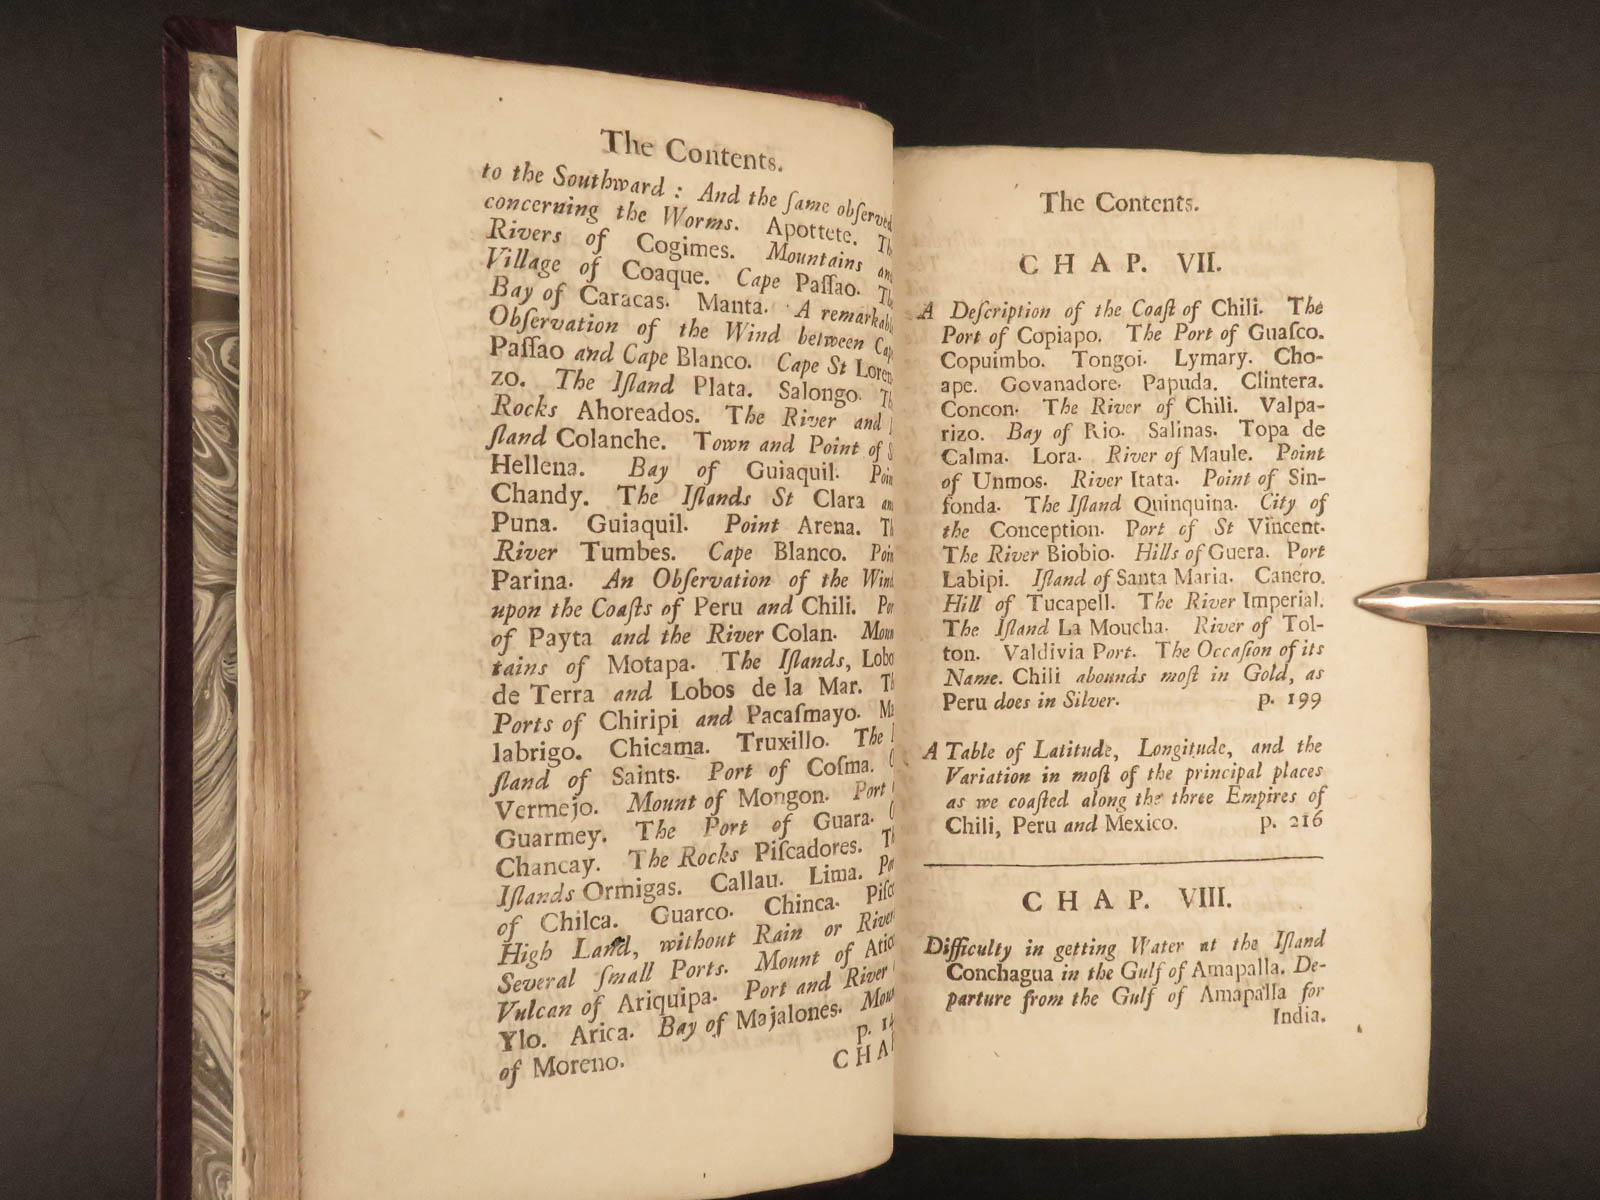 The Contents.
to the Southward : And the ſame obſerved
concerning the Worms. Apottete. The
Rivers of Cogimes. Mountains and
Village of Coaque. Cape Paſſao. The
Bay of Caracas. Manta. A remarkable
Obſervation of the Wind between Cape
Paſſao and Cape Blanco. Cape St Loren
zo. The Iſland Plata. Salongo. Th
Rocks Ahoreados. The River and I
ſland Colanche. Town and Point of S
Hellena. Bay of Guiaquil. Poin
Chandy. The Iſlands St Clara an
Puna. Guiaquil. Point Arena. Th
River Tumbes. Cape Blanco. Poin
Parina. An Obſervation of the Wind
upon the Coaſts of Peru and Chili. Por
of Payta and the River Colan. Moun
tains of Motapa. The Iſlands, Lobo
de Terra and Lobos de la Mar. Th
Ports of Chiripi and Pacaſmayo. Ma
labrigo. Chicama. Truxillo. The I
ſland of Saints. Port of Coſma.
Vermejo. Mount of Mongon. Port
Guarmey. The Port of Guara.
Chancay. The Rocks Piſcadores. Th
Iſlands Ormigas. Callau. Lima. Por
of Chilca. Guarco. Chinca. Piſco
High Land, without Rain or River
Several ſmall Ports. Mount of Atico
Vulcan of Ariquipa. Port and River
Ylo. Arica. Bay of Majalones. Moun
of Moreno. p. 14
CHAP
The Contents.
CHAP. VII.
A Deſcription of the Coaſt of Chili. The
Port of Copiapo. The Port of Guaſco.
Copuimbo. Tongoi. Lymary. Cho-
ape. Govanadore. Papuda. Clintera.
Concon. The River of Chili. Valpa-
rizo. Bay of Rio. Salinas. Topa de
Calma. Lora. River of Maule. Point
of Unmos. River Itata. Point of Sin-
fonda. The Iſland Quinquina. City of
the Conception. Port of St Vincent.
The River Biobio. Hills of Guera. Port
Labipi. Iſland of Santa Maria. Canero.
Hill of Tucapell. The River Imperial.
The Iſland La Moucha. River of Tol-
ton. Valdivia Port. The Occaſion of its
Name. Chili abounds moſt in Gold, as
Peru does in Silver. p. 199
A Table of Latitude, Longitude, and the
Variation in moſt of the principal places
as we coaſted along the three Empires of
Chili, Peru and Mexico. p. 216
CHAP. VIII.
Difficulty in getting Water at the Iſland
Conchagua in the Gulf of Amapalla. De-
parture from the Gulf of Amapalla for
India.